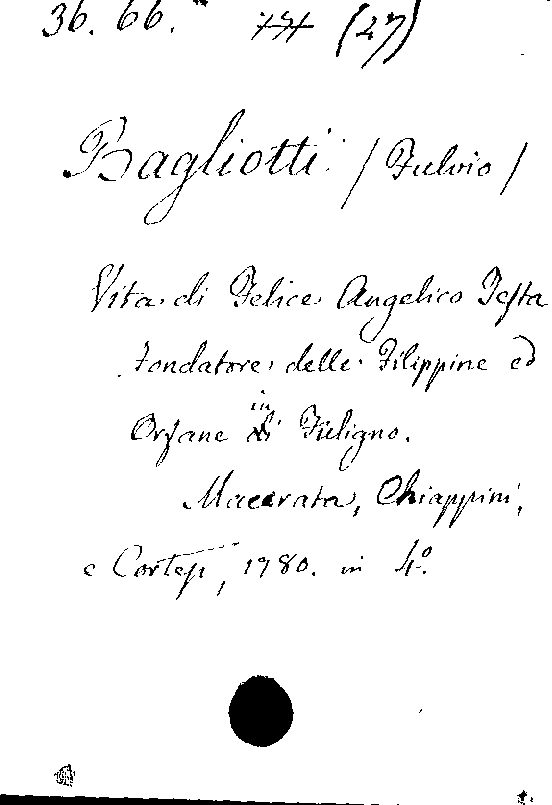 36. 66. (27)
Bagliotti / Fulvio /
Vita di Felice Angelico Testa
Fondatore delle Filippine ed
Orfane in Fuligno.
Macerata, Chiappini,
e Cortesi, 1780. in 4º.